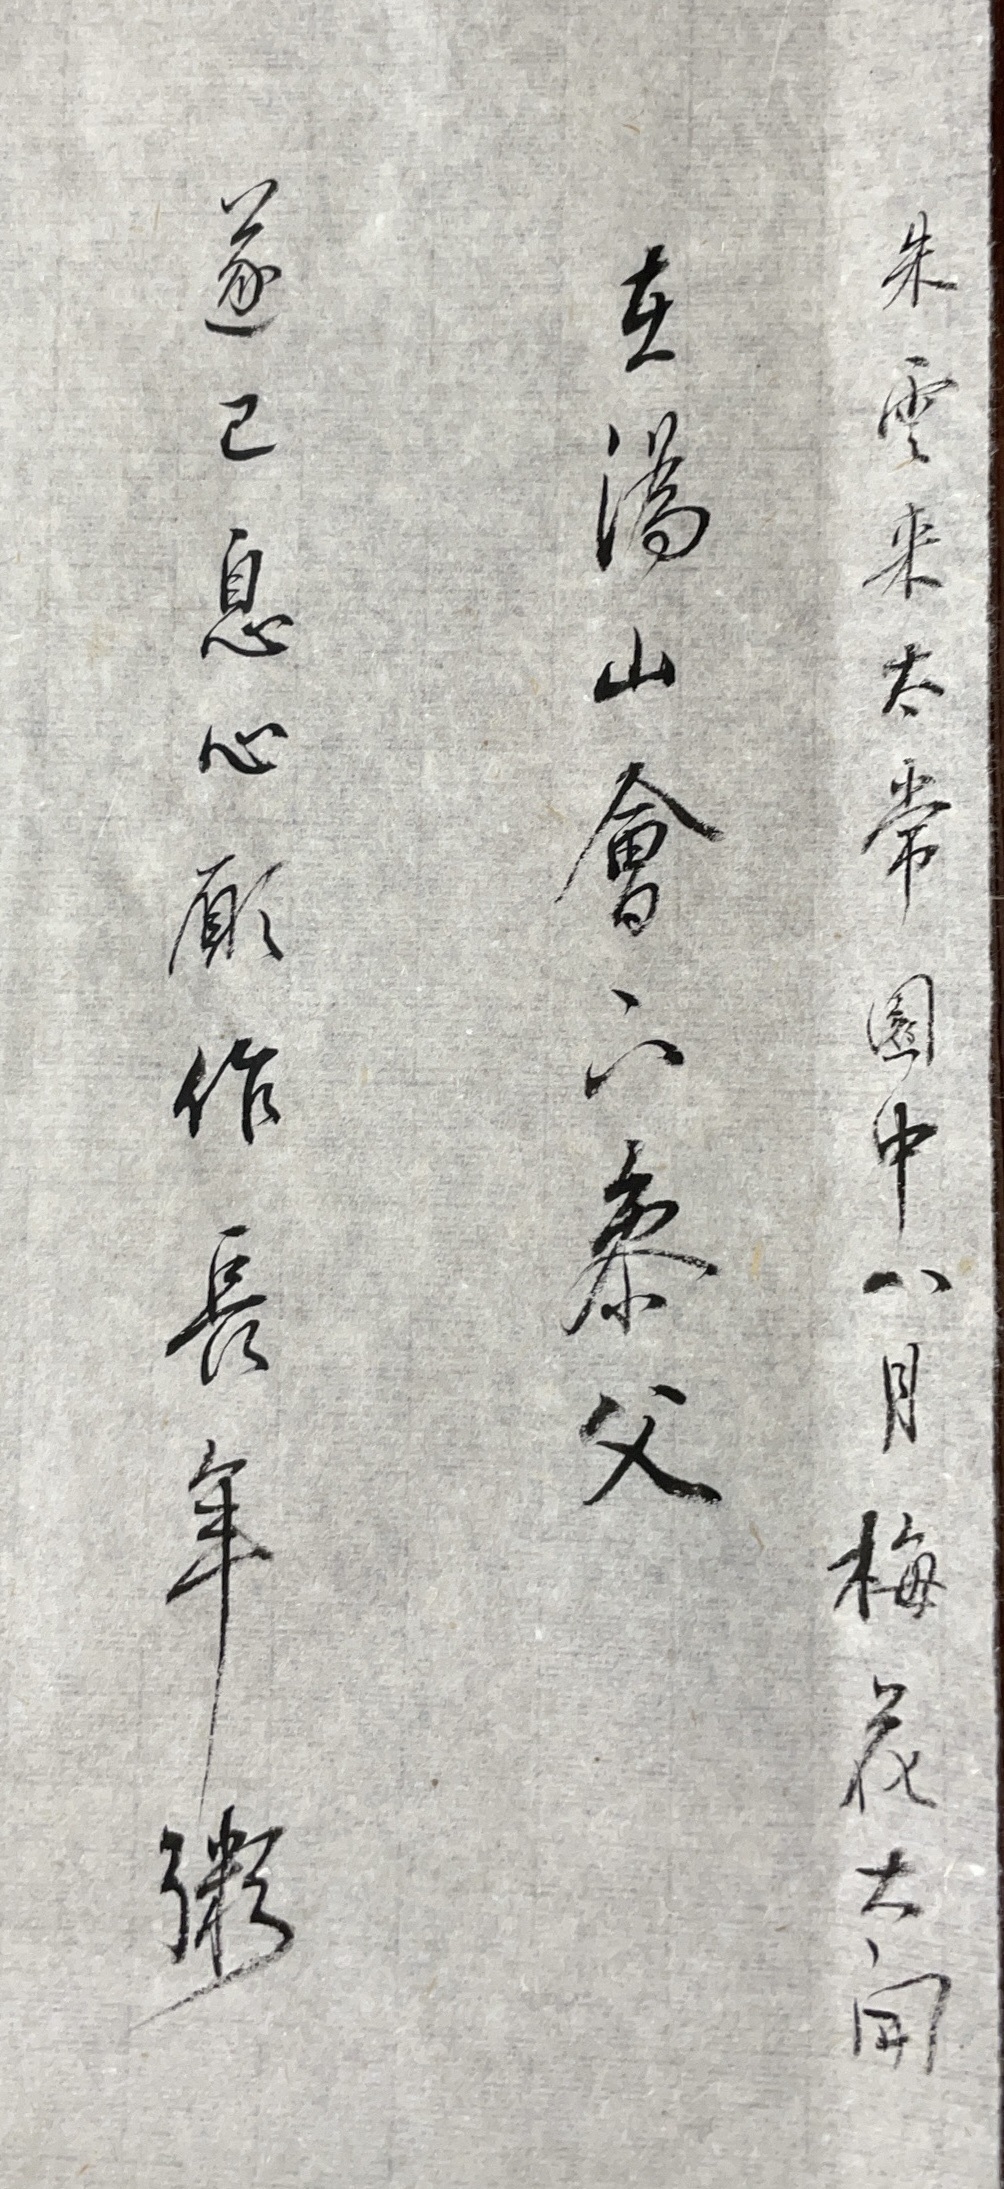 朱雲来太常園中八月梅花大開
在溈山會六泰父
遂已息心願作長年粥